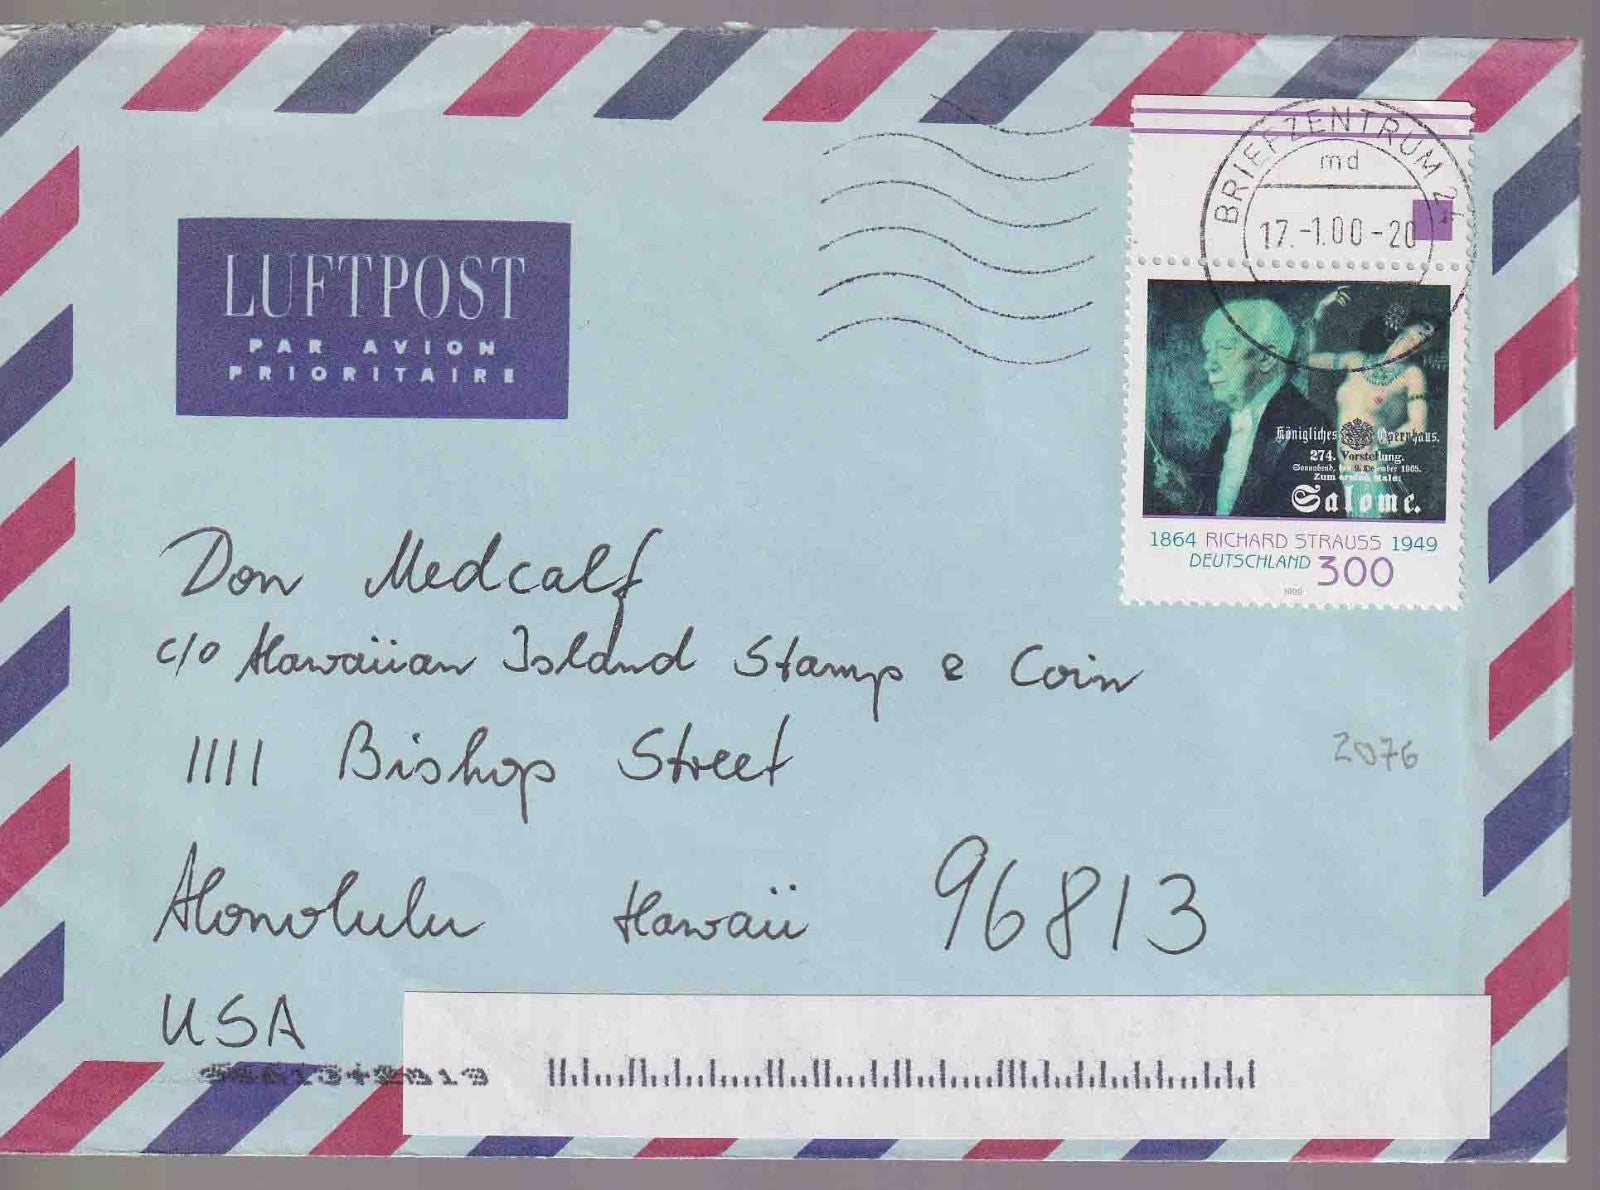 BRIEFZENTRUM 24
md
17.-1.00-20
LUFTPOST
PAR AVION
PRIORITAIRE
Königliches Opernhaus.
274. Vorstellung.
Sonnabend, den 9. Dezember 1905.
Zum ersten Male:
Salome.
1864 RICHARD STRAUSS 1949
DEUTSCHLAND 300
1999
Don Medcalf
c/o Hawaiian Island Stamp & Coin
1111 Bishop Street
2076
Honolulu Hawaii 96813
USA